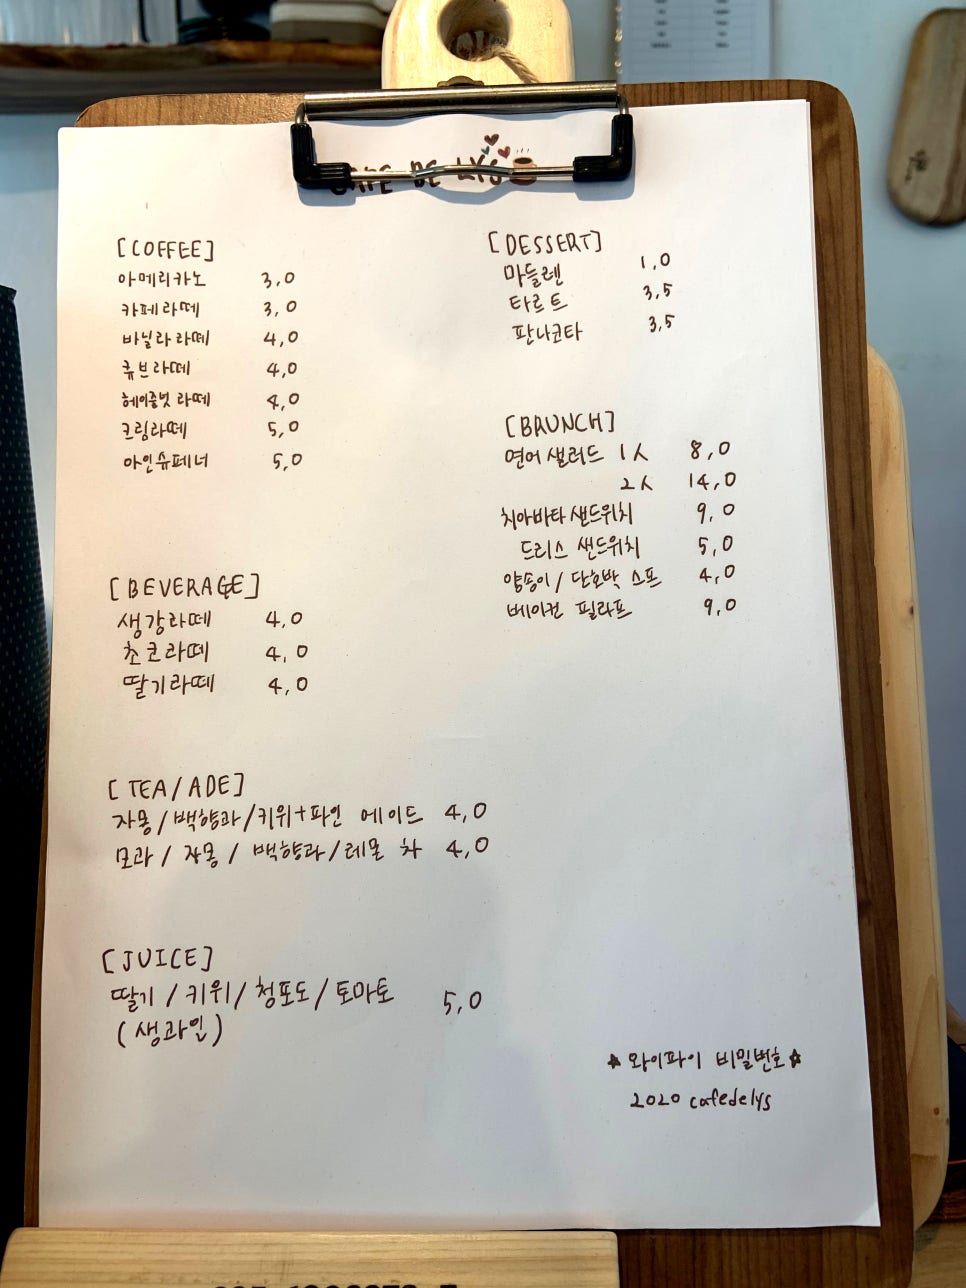 CAFE DE LYS
[COFFEE]
아메리카노 3,0
카페라떼 3,0
바닐라라떼 4,0
큐브라떼 4,0
헤이즐넛 라떼 4,0
크림라떼 5,0
아인슈페너 5,0
[BEVERAGE]
생강라떼 4,0
초코라떼 4,0
딸기라떼 4,0
[TEA/ADE]
자몽/백향과/키위+파인 에이드 4,0
모과/자몽/백향과/레몬 차 4,0
[JUICE]
딸기/키위/청포도/토마토 5,0
(생과일)
[DESSERT]
마들렌 1,0
타르트 3,5
판나코타 3,5
[BRUNCH]
연어샐러드 1人 8,0
2人 14,0
치아바타샌드위치 9,0
드리스 샌드위치 5,0
양송이/단호박 스프 4,0
베이컨 필라프 9,0
☆와이파이 비밀번호☆
2020 cafedelys